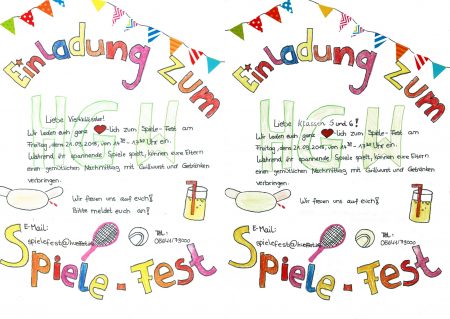 Einladung zum
Liebe Viertklässler!
Wir laden euch ganz -lich zum Spiele-Fest am
Freitag, dem 21.09.2018, von Uhr ein.
Während ihr spannende Spiele spielt, können eure Eltern
einen gemütlichen Nachmittag mit Grillwurst und Getränken
verbringen.
Wir freuen uns auf euch!
Bitte meldet euch an!
E-Mail:
Tel.:
Spiele-Fest
Einladung zum
Liebe Klassen 5 und 6!
Wir laden euch ganz -lich zum Spiele-Fest am
Freitag, dem 21.09.2018, von Uhr ein.
Während ihr spannende Spiele spielt, können eure Eltern
einen gemütlichen Nachmittag mit Grillwurst und Getränken
verbringen.
Wir freuen uns auf euch!
E-Mail:
Tel.:
Spiele-Fest